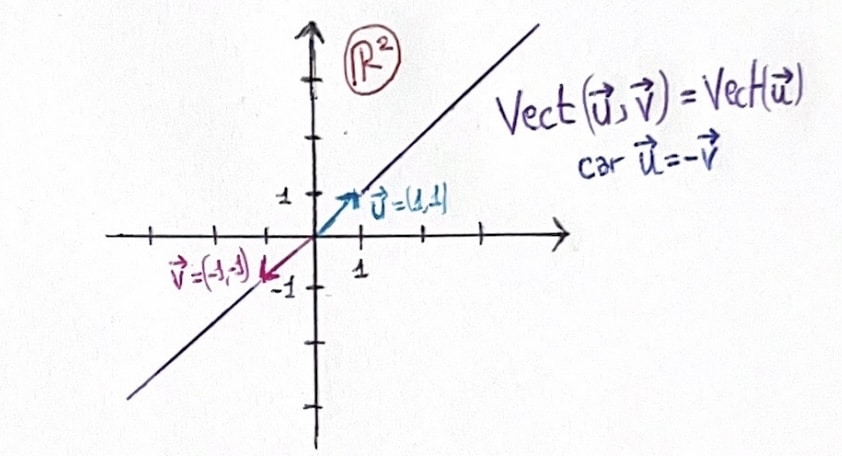 ℝ²
Vect(u⃗,v⃗) = Vect(u⃗)
car u⃗=-v⃗
1
u⃗=(1,1)
v⃗=(-1,-1)
1
-1